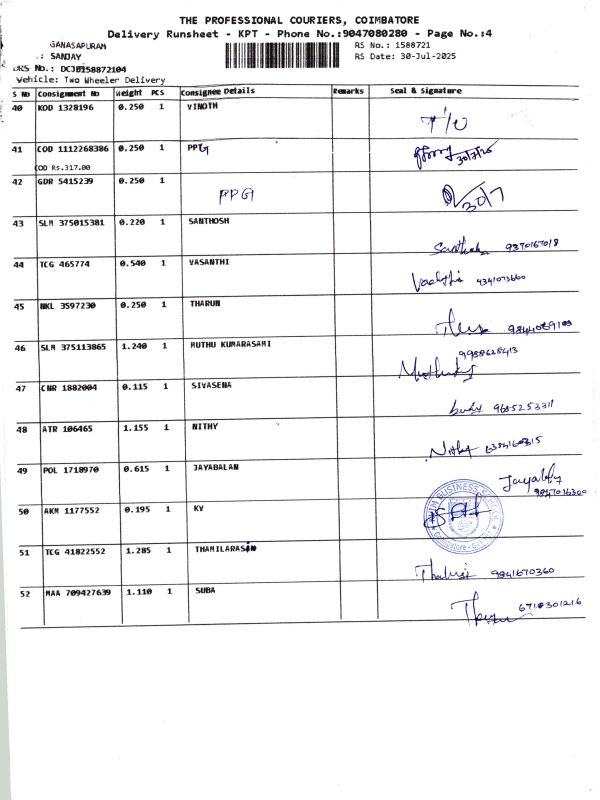 THE PROFESSIONAL COURIERS, COIMBATORE
Delivery Runsheet - KPT - Phone No.:9047080280 - Page No.:4
GANASAPURAM
RS No.: 1588721
.: SANJAY
RS Date: 30-Jul-2025
DRS No.: DCJB158872104
Vehicle: Two Wheeler Delivery
S No Consignment No Weight PCS Consignee Details Remarks Seal & Signature
40 KOD 1328196 0.250 1 VINOTH
41 COD 1112268386 0.250 1 PPG 30/7/25
COD Rs.317.00
42 GDR 5415239 0.250 1 PPG 30/7
43 SLM 375015381 0.220 1 SANTHOSH
44 TCG 465774 0.540 1 VASANTHI 4341073660
45 NKL 3597230 0.250 1 THARUN
46 SLM 375113865 1.240 1 MUTHU KUMARASAMI 9988628413
47 CNR 1882004 0.115 1 SIVASENA 9685253311
48 ATR 106465 1.155 1 NITHY
49 POL 1718970 0.615 1 JAYABALAN
50 AKM 1177552 0.195 1 KV
51 TCG 41822552 1.285 1 THAMILARASIN 9841670360
52 MAA 709427639 1.110 1 SUBA 6718301216